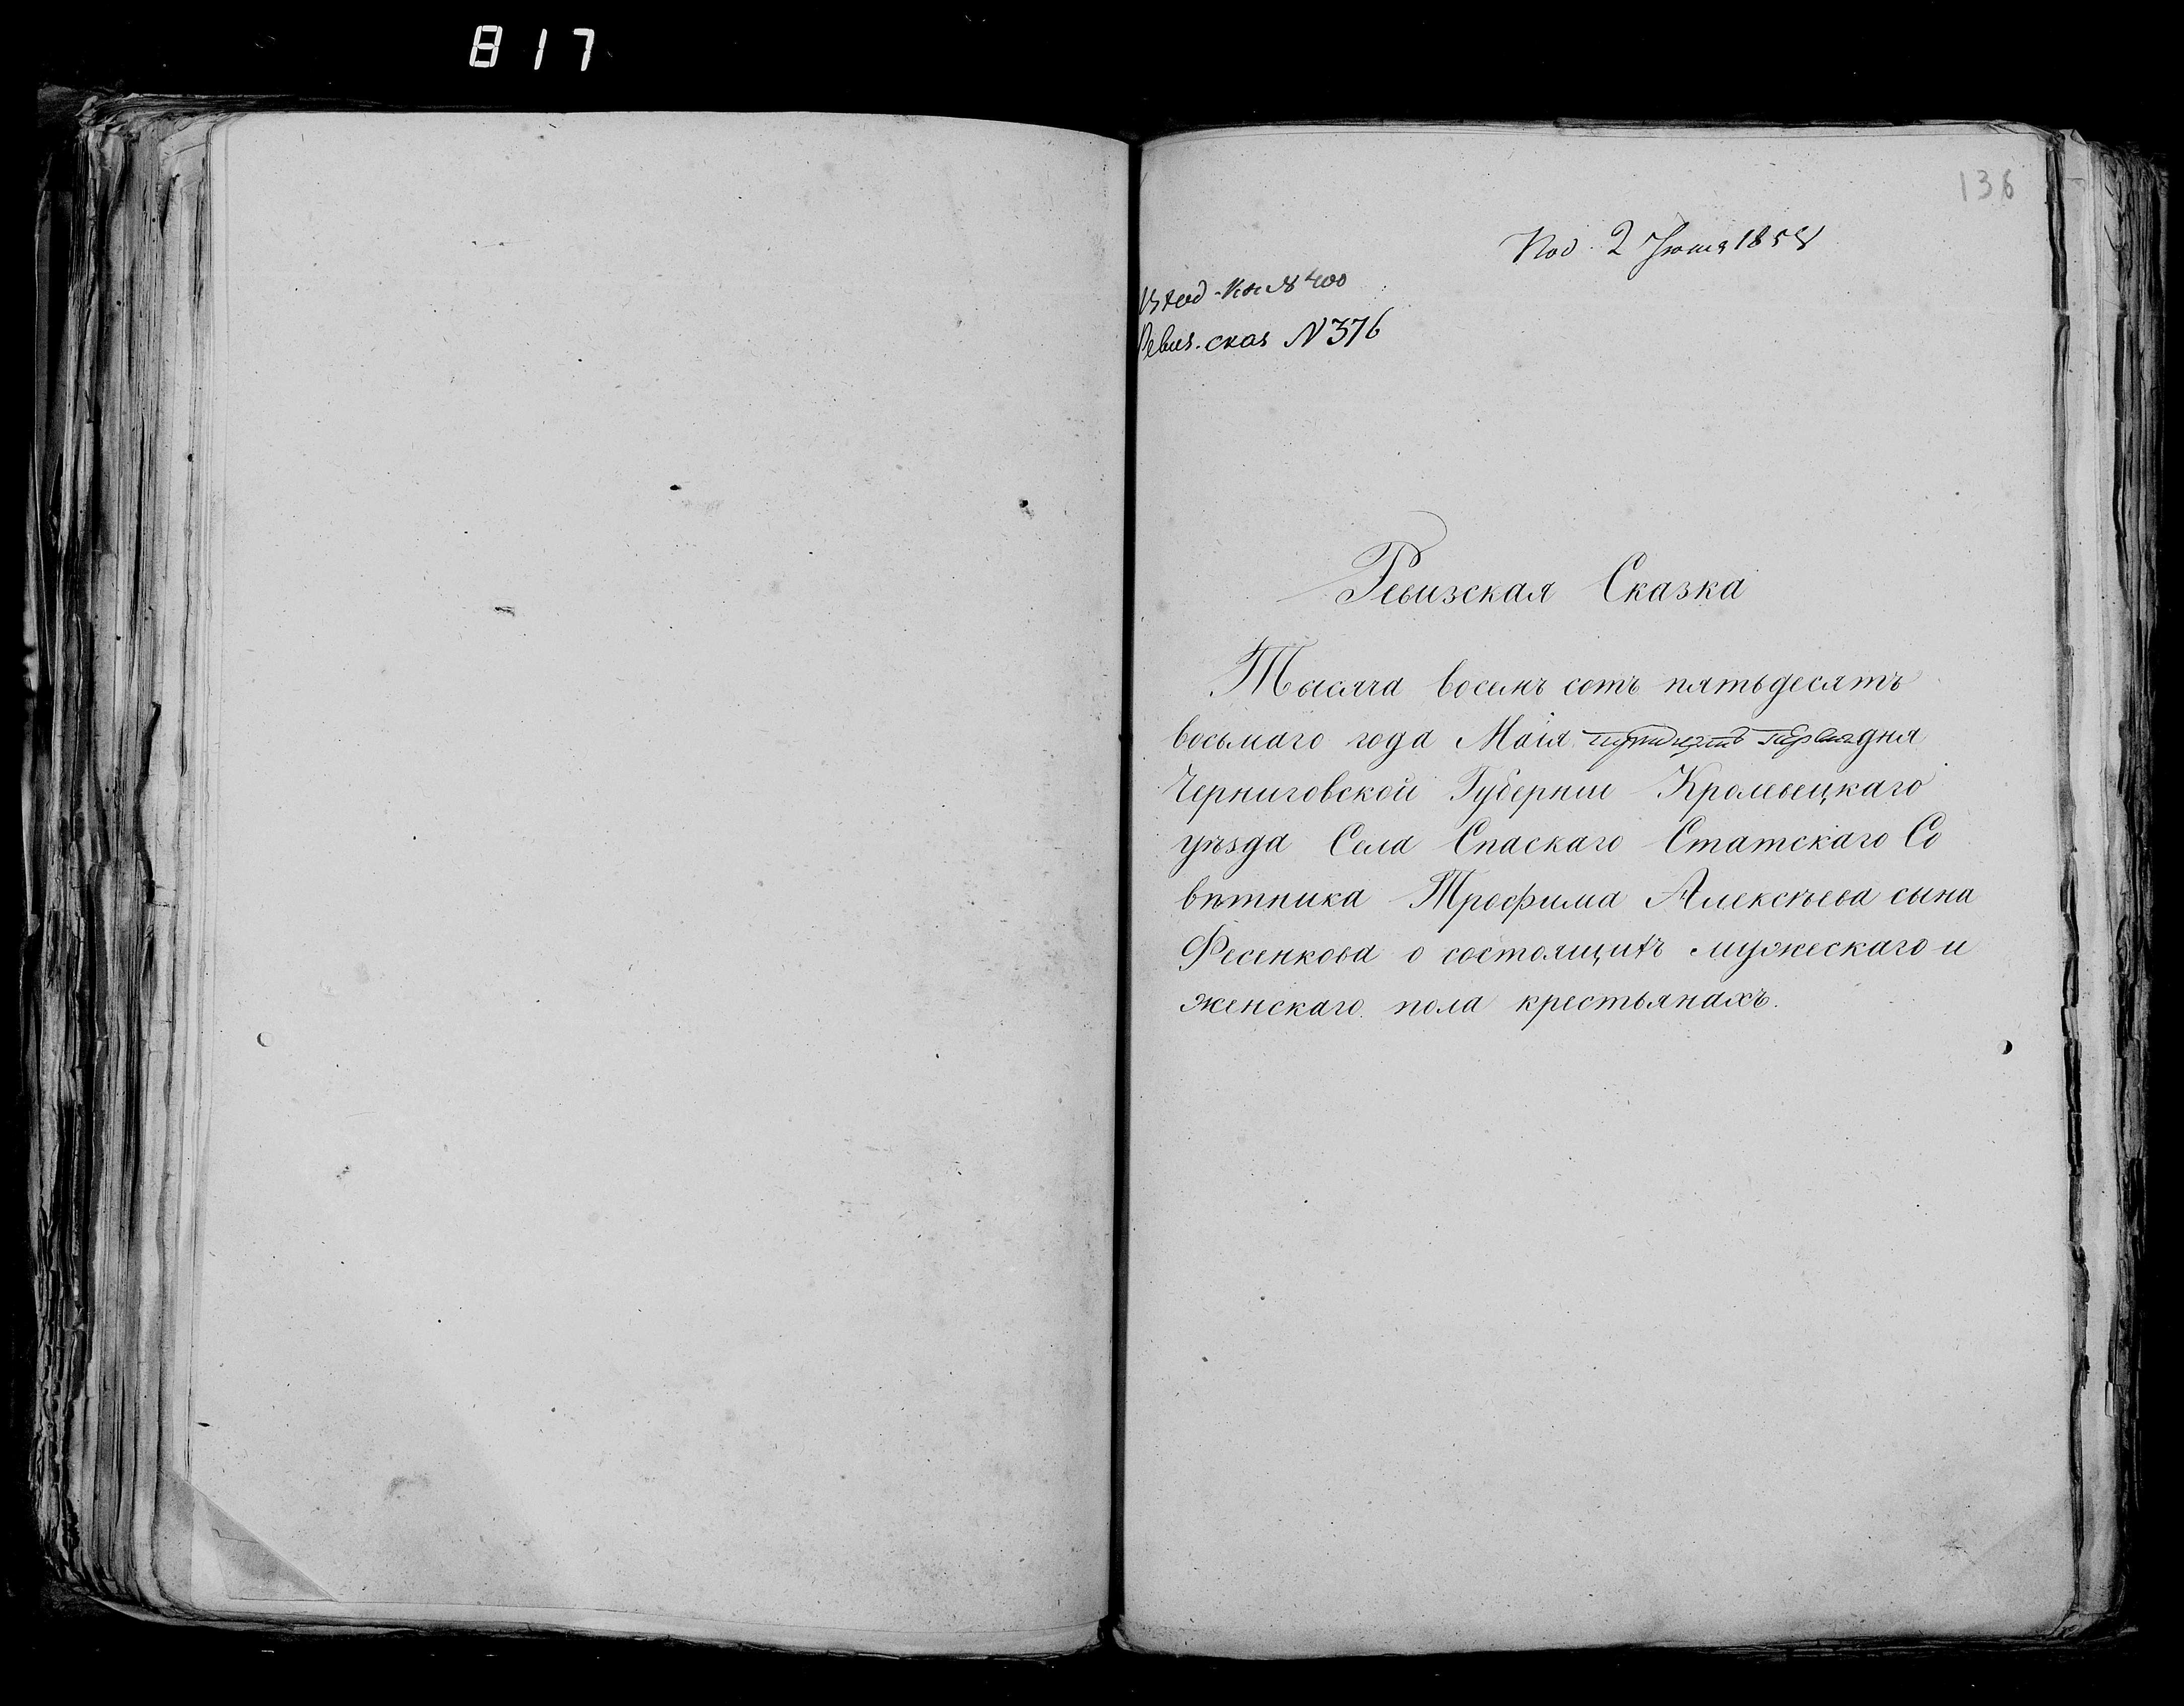 817
136
Под. 2 Іюня 1858
Вход. Кн. № 400
Ревиз. сказ N 376
Ревизская Сказка
Тысяча восемъ сотъ пятьдесятъ
восьмаго года Маія тридцять перваго дня
Черниговской Губерніи Кролевецкаго
уѣзда Села Спаскаго Статскаго Со
вѣтника Трофима Алексѣева сына
Фесенкова о состоящихъ мужескаго и
женскаго пола крестьянахъ.